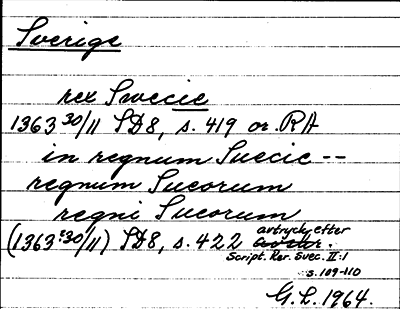 Sverige
rex Swecie
1363 30/11 SD8, s. 419 or. RA
in regnum Suecie --
regnum Sueorum
regni Sueorum
(1363 30/11) SD8, s. 422 avtryck efter
Script. Rer. Svec. II:1
s. 109-110
G. L. 1964.